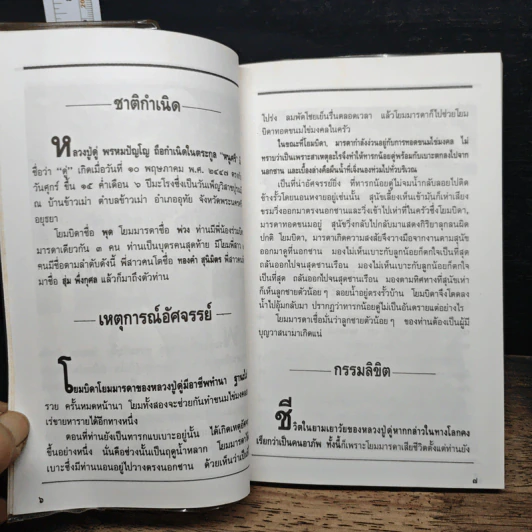 ชาติกำเนิด
หลวงปู่ดู่ พรหมปัญโญ ถือกำเนิดในตระกูล "หนูศรี"
ชื่อว่า "ดู่" เกิดเมื่อวันที่ ๑๐ พฤษภาคม พ.ศ. ๒๔๔๗
วันศุกร์ ขึ้น ๑๕ ค่ำเดือน ๖ ปีมะโรงซึ่งเป็นวันเพ็ญวิสาขปุรณมี
ณ บ้านข้าวเม่า ตำบลข้าวเม่า อำเภออุทัย จังหวัดพระนครศรี
อยุธยา
โยมบิดาชื่อ พุด โยมมารดาชื่อ พ่วง ท่านมีพี่น้องร่วมโยม
มารดาเดียวกัน ๓ คน ท่านเป็นบุตรคนสุดท้าย มีโยมพี่สาว
คนมีชื่อตามลำดับดังนี้ พี่สาวคนโตชื่อ ทองคำ สุนิมิตร พี่สาวคน
มาชื่อ สุ่ม พึ่งกุศล แล้วก็มาถึงตัวท่าน
เหตุการณ์อัศจรรย์
โยมบิดาโยมมารดาของหลวงปู่ดู่มีอาชีพทำนา ฐานะ
รวย ครั้นหมดหน้านา โยมทั้งสองจะช่วยกันทำขนมไข่มงคล
เร่ขายหารายได้อีกทางหนึ่ง
ตอนที่ท่านยังเป็นทารกแบเบาะอยู่นั้น ได้เกิดเหตุอัศจรรย์
ขึ้นอย่างหนึ่ง นั่นคือช่วงนั้นเป็นฤดูน้ำหลาก โยมมารดา
เบาะซึ่งมีท่านนอนอยู่ไปวางตรงนอกชาน ด้วยเห็นว่าเป็น
๖
โปร่ง ลมพัดโชยเย็นรื่นตลอดเวลา แล้วโยมมารดาก็ไปช่วยโยม
บิดาทอดขนมไข่มงคลในครัว
ในขณะที่โยมบิดา, มารดากำลังง่วนอยู่กับการทอดขนมไข่มงคล ไม่
ทราบว่าเป็นเพราะสาเหตุอะไรจึงทำให้ทารกน้อยดู่พร้อมกับเบาะตกลงไปจาก
นอกชาน และเบื้องล่างคือผืนน้ำที่เจิ่งนองท่วมไปทั่วบริเวณ
เป็นที่น่าอัศจรรย์ยิ่ง ที่ทารกน้อยดู่ไม่จมน้ำกลับลอยไปติด
ข้างรั้วโดยนอนหงายอยู่เช่นนั้น สุนัขเลี้ยงเห็นเข้ามันก็เห่าเสียง
ขรมวิ่งออกมาตรงนอกชานและวิ่งเข้าไปเห่าที่ในครัวซึ่งโยมบิดา,
มารดาทอดขนมอยู่ สุนัขวิ่งกลับไปกลับมาแสดงกิริยาลุกลนผิด
ปกติ โยมบิดา, มารดาเกิดความสงสัยจึงวางมือจากงานตามสุนัข
ออกมาดูที่นอกชาน มองไม่เห็นเบาะกับลูกน้อยก็ตกใจเป็นที่สุด
ถลันออกไปจนสุดชานเรือน มองไม่เห็นเบาะกับลูกน้อยก็ตกใจ
เป็นที่สุด ถลันออกไปจนสุดชานเรือน มองตามทิศทางที่สุนัขเห่า
ก็เห็นลูกชายตัวน้อย ๆ ลอยน้ำอยู่ตรงรั้วบ้าน โยมบิดาจึงโดดลง
น้ำไปอุ้มกลับมา ปรากฏว่าทารกน้อยดู่ไม่เป็นอันตรายแต่อย่างไร
โยมมารดาเชื่อมั่นว่าลูกชายตัวน้อย ๆ ของท่านต้องเป็นผู้มี
บุญวาสนามาเกิดแน่
กรรมลิขิต
ชีวิตในยามเยาว์วัยของหลวงปู่ดู่หากกล่าวในทางโลกคง
เรียกว่าเป็นคนอาภัพ ทั้งนี้ก็เพราะโยมมารดาเสียชีวิตตั้งแต่ท่านยัง
๗